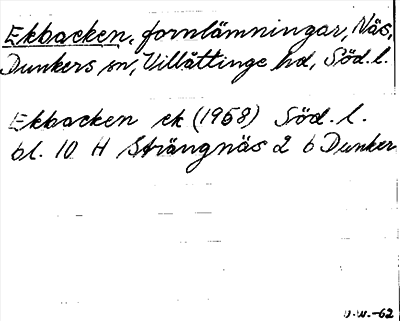 Ekbacken, fornlämningar, Näs,
Dunkers sn, Villåttinge hd, Söd.l.
Ekbacken ek (1958) Söd. l.
bl. 10 H Strängnäs 2 b Dunker
D.W.-62